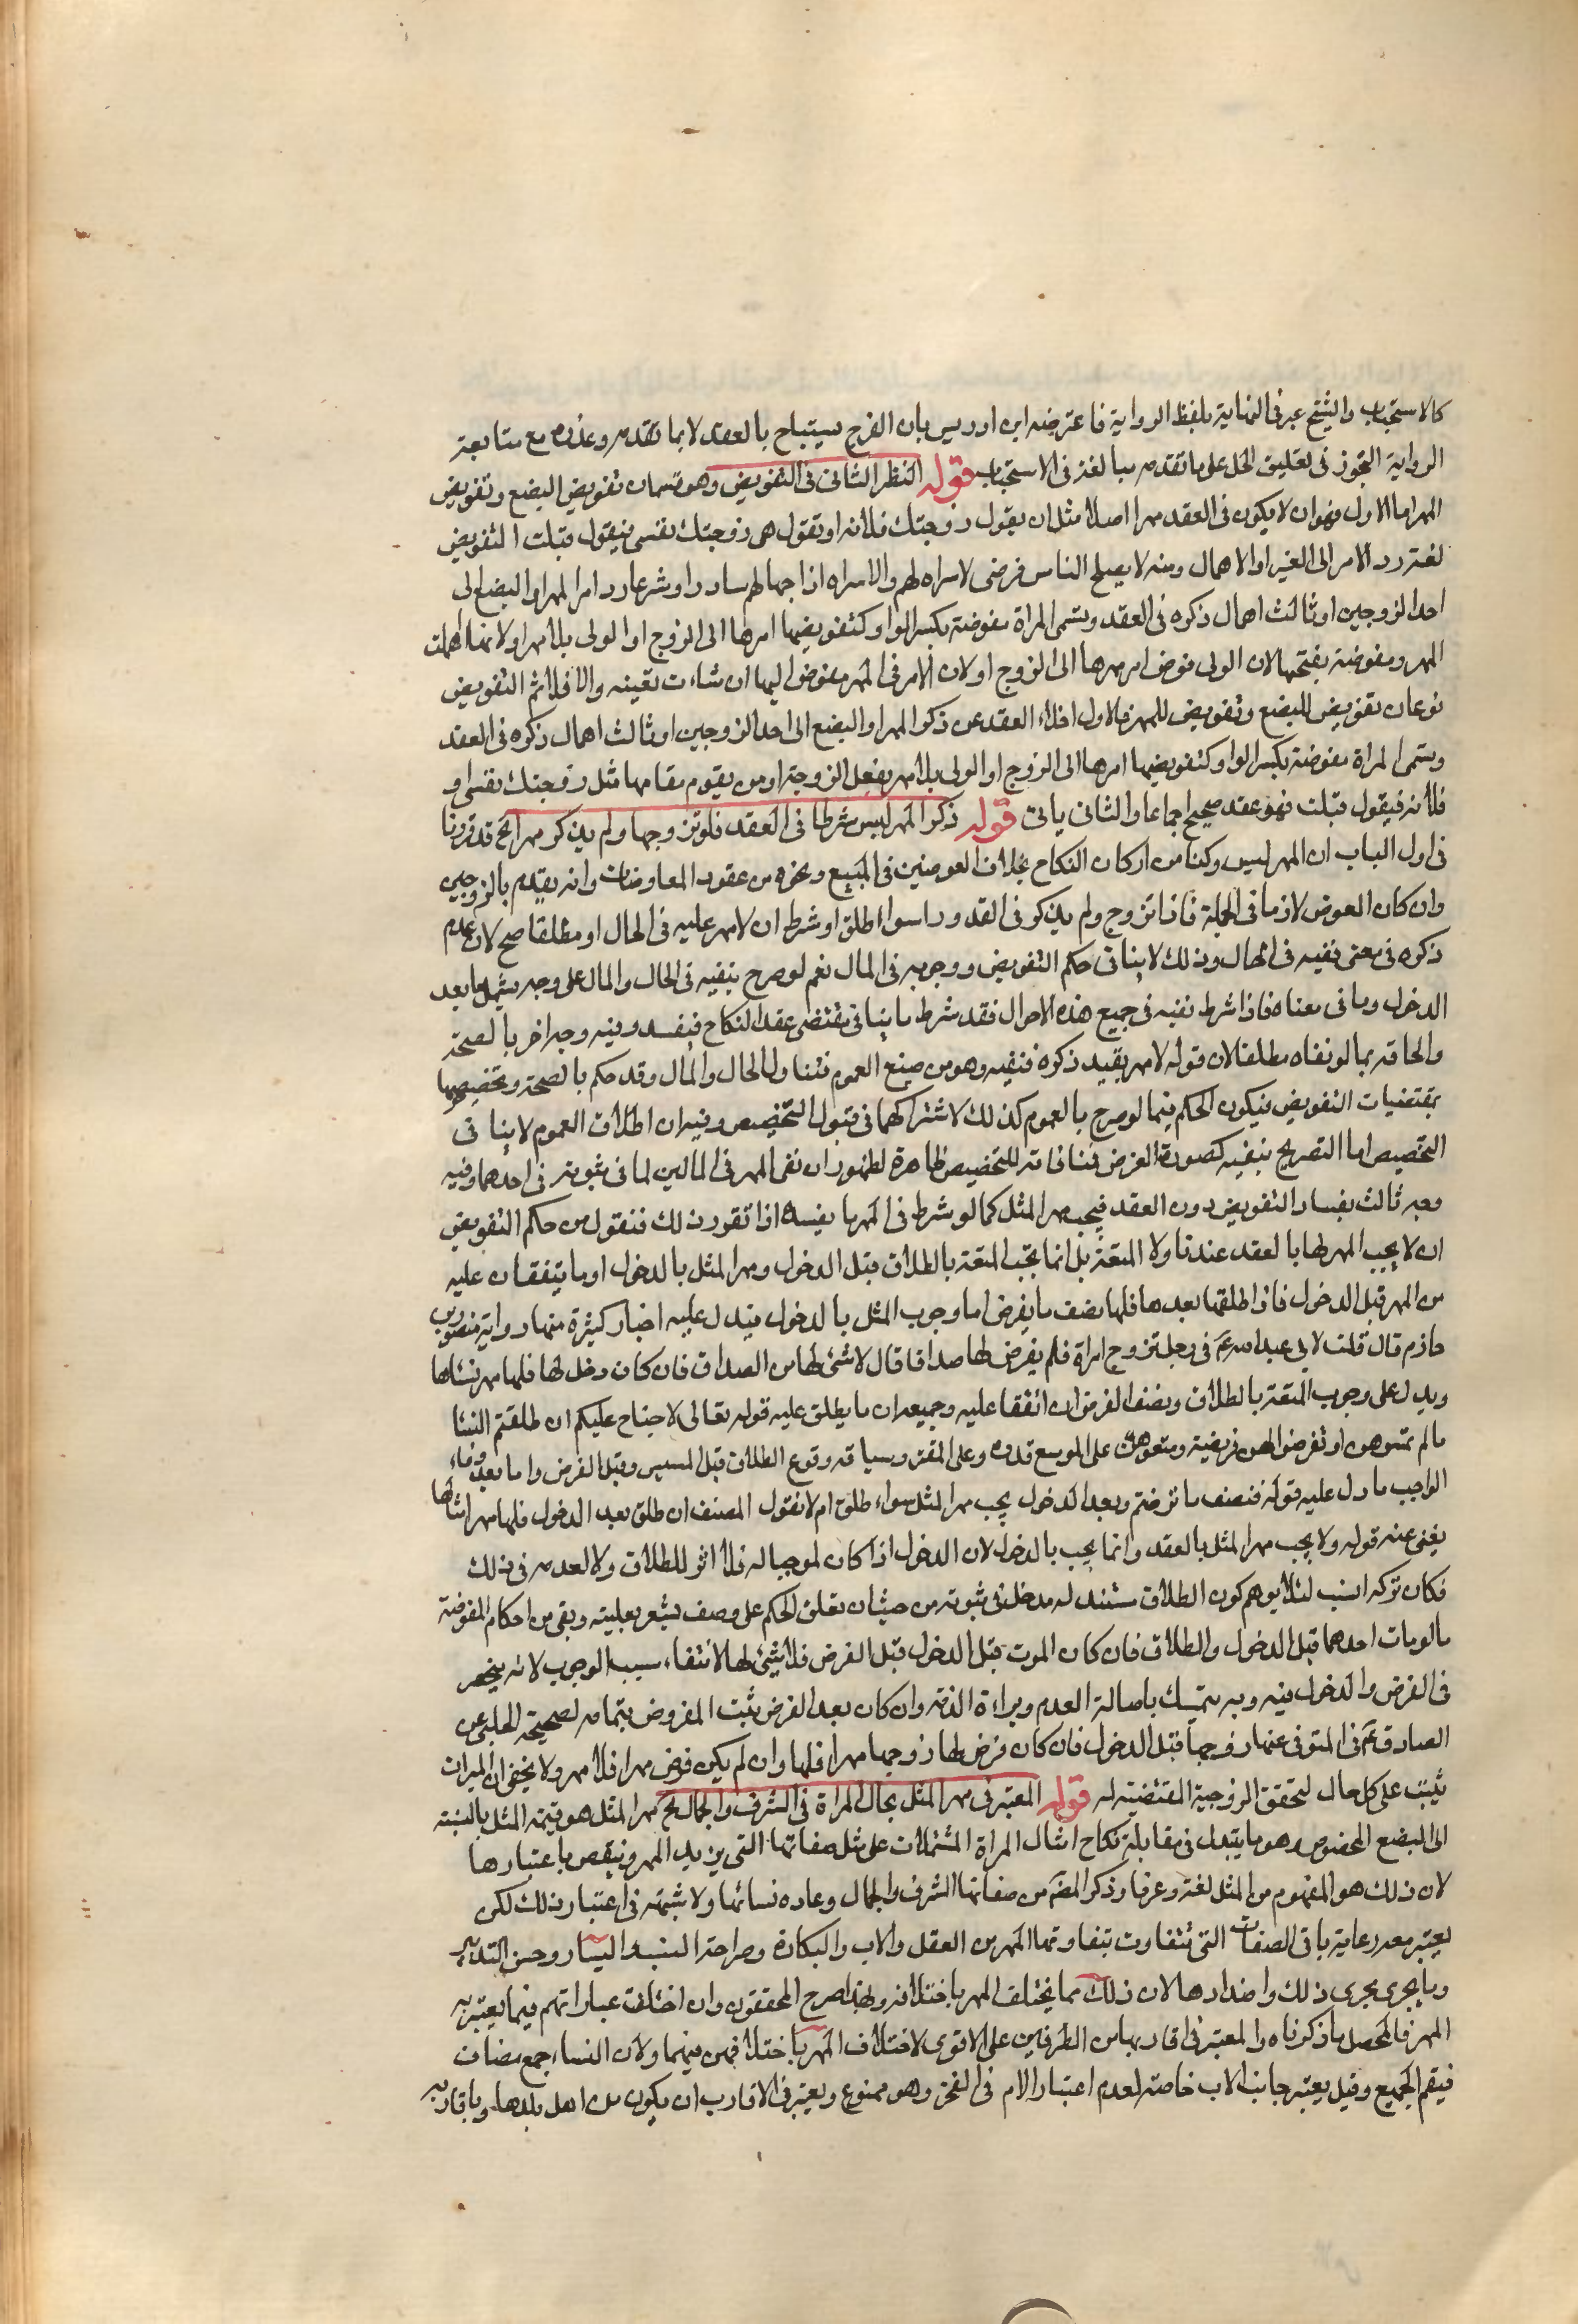 كالاستحباب والشيخ عبر في النهاية بلفظ الرواية فاعترضه ابن ادريس بان الفرج يستباح بالعقد لا بما تقدمه وعذره مع متابعة
الرواية التجوز في تعليق الحل على ما تقدمه مبالغة في الاستحباب قوله النظر الثاني في التفويض وهو قسمان تفويض البضع وتفويض
المهر اما الاول فهو ان لا يكون في العقد مهرا اصلا مثل ان يقول زوجتك فلانة او تقول هى زوجتك نفسى فيقول قبلت التفويض
لغة رد الامر الى الغير او الاهمال ومنه لا يصلح الناس فوضى لا سراه لهم ولا سراه اذا جهالهم سادوا وشرعا رد امر المهر او البضع الى
احد الزوجين او ثالث اهمال ذكره في العقد وتسمى المراة مفوضة بكسر الواو كتفويضها امرها الى الزوج او الولى بلا مهر او لانها اهملت
المهر ومفوضة بفتحها لان الولى فوض امر مهرها الى الزوج او لان الامر في المهر مفوض اليها ان شاءت نفينه والا فلا ثم التفويض
نوعان تفويض للبضع وتفويض للمهر فالاول اخلاء العقد عن ذكر المهر او البضع الى احد الزوجين او ثالث اهمال ذكره في العقد
وتسمى المراة مفوضة بكسر الواو كتفويضها امرها الى الزوج او الولى بلا مهر بفعل الزوجة او من يقوم مقامها مثل زوجتك نفسى او
فلانة فيقول قبلت فهو عقد صحيح اجماعا والثاني ياتى قوله ذكر المهر ليس شرطا في العقد فلو تزوجها ولم يذكر مهرا الخ قد قررنا
في اول الباب ان المهر ليس ركنا من اركان النكاح بخلاف العوضين في المبيع ونحوه من عقود المعاوضات وانه يقدم بالزوجين
وان كان العوض لازما في الجملة فاذا تزوج ولم يذكر في العقد مهرا سواء اطلق او شرط ان لا مهر عليه في الحال او مطلقا صح لان عدم
ذكره في معنى نفيه في الحال وذلك لا ينافى حكم التفويض ووجوبه في المال نعم لو صرح بنفيه في الحال والمال على وجه يشمل ما بعد
الدخول وما في معناه فاذا شرط نفيه في جميع هذه الاحوال فقد شرط ما ينافى مقتضى عقد النكاح فيفسد وفيه وجه اخر بالصحة
والحاقه بما لو نفاه مطلقا لان قوله لا مهر يفيد نكرة منفيه وهو من صيغ العموم فتناول الحال والمال وقد حكم بالصحة وتخصيصها
بمقتضيات التفويض فيكون الحكم فيما لو صرح بالعموم كذلك لاشتراكهما في قبول التخصيص وفيه ان اطلاق العموم لا ينافى
التخصيص اما التصريح بنفيه كصورة الفرض فمنافاته للتخصيص ظاهرة لظهور ان نفى المهر في الحالين لما في ثبوته في احدهما وفيه
وجه ثالث بفساد التفويض دون العقد فيجب مهر المثل كما لو شرط في المهر ما يفسده اذا تقرر ذلك فنقول من حكم التفويض
ان لا يجب المهر لها بالعقد عندنا ولا المتعة بل انما تجب المتعة بالطلاق قبل الدخول ومهر المثل بالدخول او ما يتفقان عليه
من المهر قبل الدخول فاذا طلقها بعدها فلها نصف ما يفرض اما وجوب المثل بالدخول فيدل عليه اخبار كثيرة منها رواية منصور بن
حازم قال قلت لابى عبد الله ع في رجل تزوج امراة فلم يفرض لها صداقا قال لا شئ لها من الصداق فان كان دخل لها فلها مهر نسائها
ويدل على وجوب المتعة بالطلاق ونصف الفرض ان اتفقا عليه وجميعه ان ما يطلق عليه قوله تعالى لا جناح عليكم ان طلقتم النسا
ما لم تمسوهن او تفرضوا لهن فريضة ومتعوهن على الموسع قدره وعلى المقتر وسياقه وقوع الطلاق قبل المسيس وقبل الفرض واما بعد
الواجب ما دل عليه قوله فنصف ما فرضتم وبعد الدخول يجب مهر المثل سواء طلق ام لا فقول المصنف ان طلق بعد الدخول فلها مهر امثالها
يغنى عنه قوله ولا يجب مهر المثل بالعقد وانما يجب بالدخول لان الدخول اذا كان موجبا له فلا اثر للطلاق ولا لعدمه في ذلك
فكان تركه انسب لئلا يوهم كون الطلاق مستند له مدخل في ثبوته من حيث ان تعلق الحكم على وصف يشعر بعليته وبقى من احكام المفوضة
ما لو مات احدهما قبل الدخول والطلاق فان كان الموت قبل الدخول قبل الفرض فلا شئ لها لانتفاء سبب الوجوب لانه ينحصر
في الفرض والدخول فيه وبه يتمسك باصالة العدم وبراءة الذمة وان كان بعد الفرض ثبت المفروض بتمامه لصحيحة الحلبى عن
الصادق ع في المتوفى عنها زوجها قبل الدخول فان كان فرض لها زوجها مهرا فلها وان لم يكن فرض مهرا فلا مهر ولا يخفى ان الميراث
يثبت على كل حال لتحقق الزوجية المقتضية له قوله المعتبر في مهر المثل بحال المراة في الشرف والجمال الخ مهر المثل هو قيمة المثل بالنسبة
الى البضع المخصوص وهو ما يبذل في مقابلة نكاح امثال المراة المشتملات على مثل صفاتها التى يزيد المهر وينقص باعتبارها
لان ذلك هو المفهوم من المثل لغة وعرفا وذكر المصنف من صفاتها الشرف والجمال وعاده نسائها ولا شبهة في اعتبار ذلك لكن
يعتبر معه رعاية باقى الصفات التى تتفاوت بتفاوتها المهر من العقل والادب والبكارة وصراحة النسب واليسار وحسن التدبير
وما يجرى مجرى ذلك واضدادها لان ذلك مما يختلف المهر باختلافه وبهذا صرح المحققون وان اختلفت عباراتهم فيما يعتبر به
المهر فالمحصل ما ذكرناه والمعتبر في اقاربها من الطرفين على الاقوى لاختلاف المهر باختلافهن فيهما ولان النساء جمع مضاف
فيعم الجميع وقيل يعتبر جانب الاب خاصة لعدم اعتبار الام في الفخر وهو ممنوع ويعتبر في الاقارب ان يكون من اهل بلدها